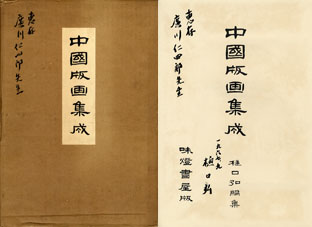 惠存
廣川仁四郎先生
中國版画集成
惠存
廣川仁四郎先生
中國版画集成
一九六七、九
樋口弘
樋口弘編集
味燈書屋版